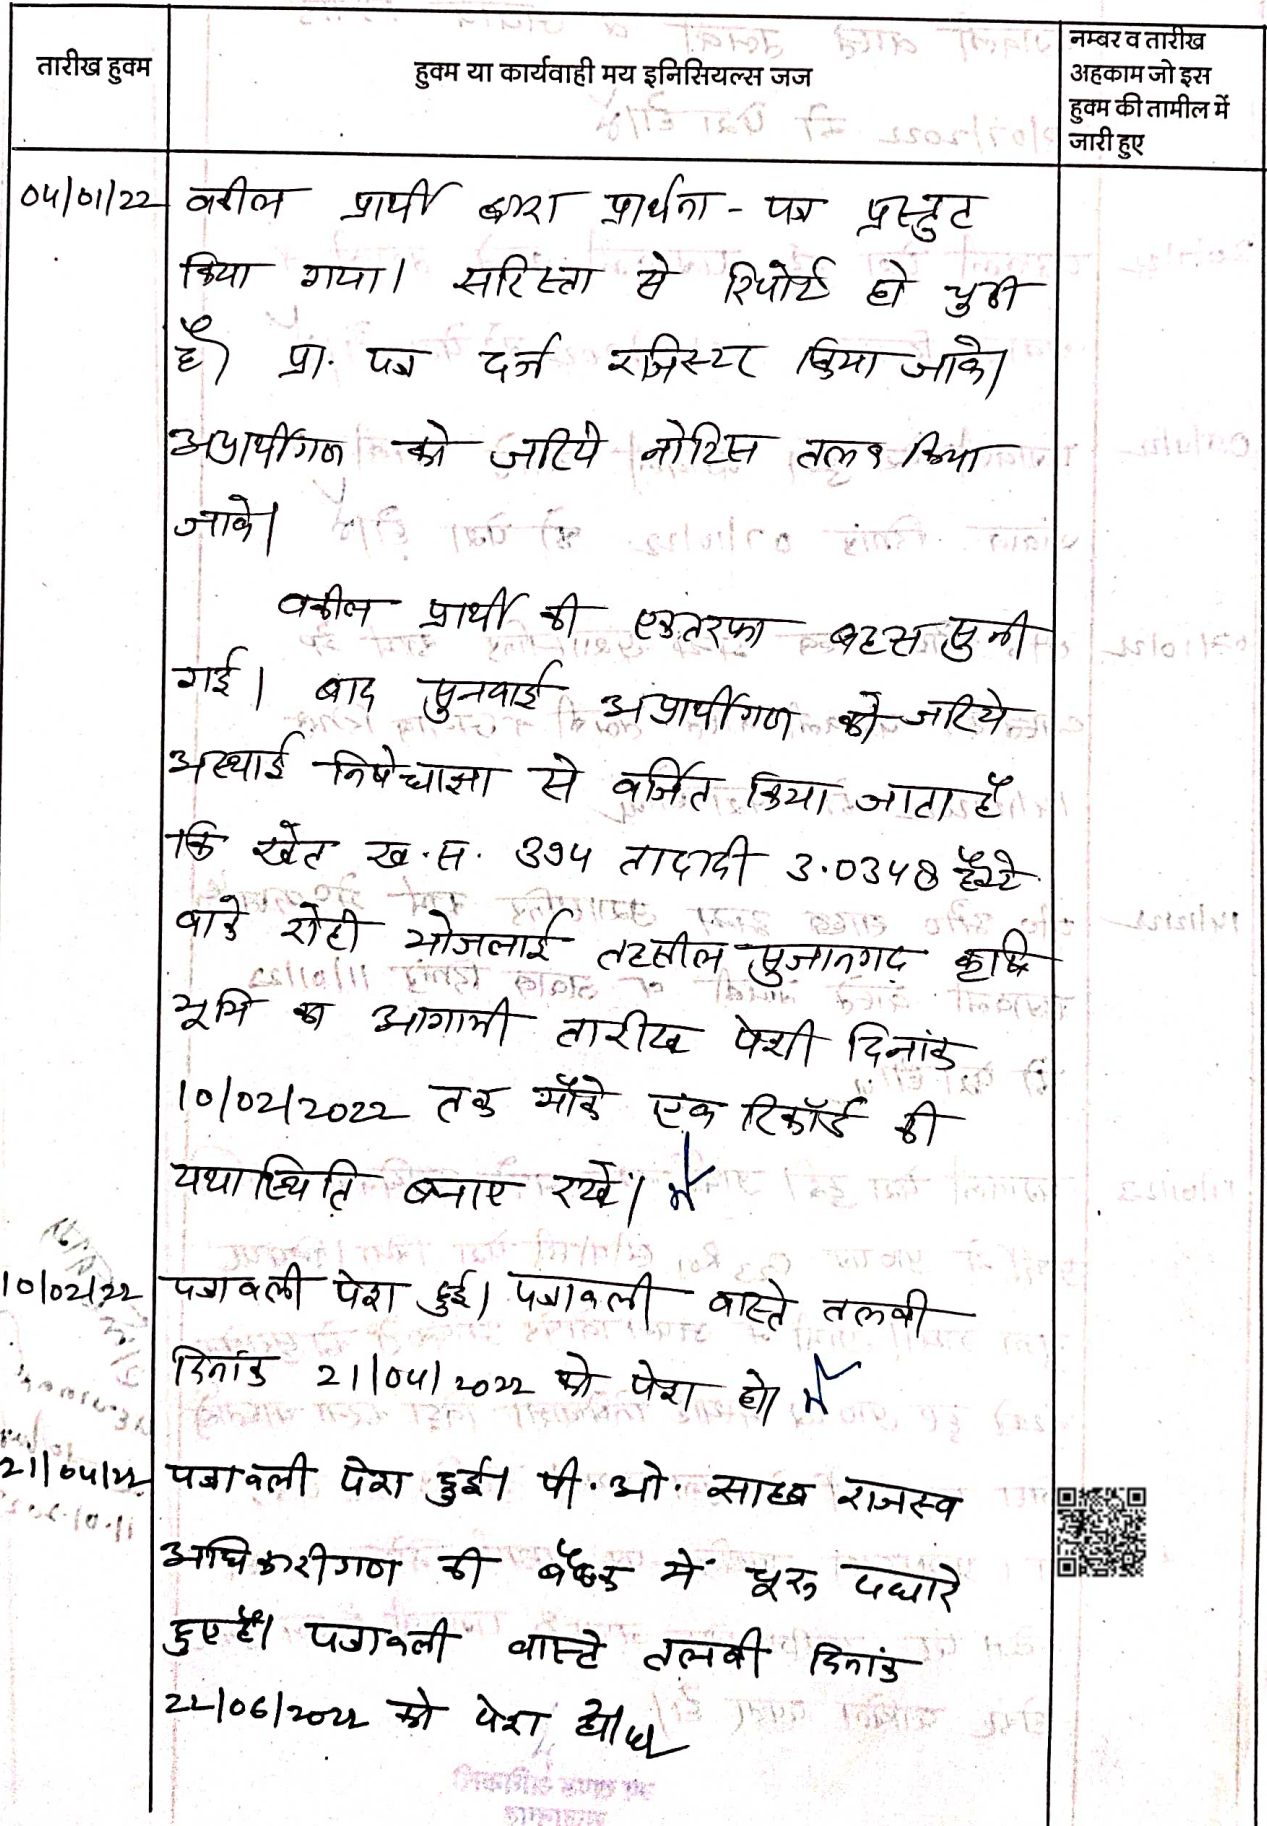 तारीख हुक्म
हुक्म या कार्यवाही मय इनिसियल्स जज
नम्बर व तारीख
अहकाम जो इस
हुक्म की तामील में
जारी हुए
04/01/22 वकील प्रार्थी द्वारा प्रार्थना-पत्र प्रस्तुट
किया गया। सरिस्ता से रिपोर्ट हो चुकी
है। प्रा. पत्र दर्ज रजिस्टर किया जावे।
अप्रार्थीगण को जरिये नोटिस तलब किया
जावे।
वकील प्रार्थी की एकतरफा बहस सुनी
गई। बाद सुनवाई अप्रार्थीगण को जरिये
अस्थाई निषेधाज्ञा से वर्जित किया जाता है
कि खेत ख.स. 394 तादादी 3.0348 हैक्टे
वाके रोही भोजलाई तहसील सुजानगढ़ कृषि
भूमि का आगामी तारीख पेशी दिनांक
10/02/2022 तक मौके एवं रिकॉर्ड की
यथास्थिति बनाए रखें।
10/02/22 पत्रावली पेश हुई। पत्रावली वास्ते तलबी
दिनांक 21/04/2022 को पेश हो।
21/04/22 पत्रावली पेश हुई। पी.ओ. साहब राजस्व
अधिकारीगण की बैठक में चूरू पधारे
हुए है। पत्रावली वास्ते तलबी दिनांक
22/06/2022 को पेश हो।